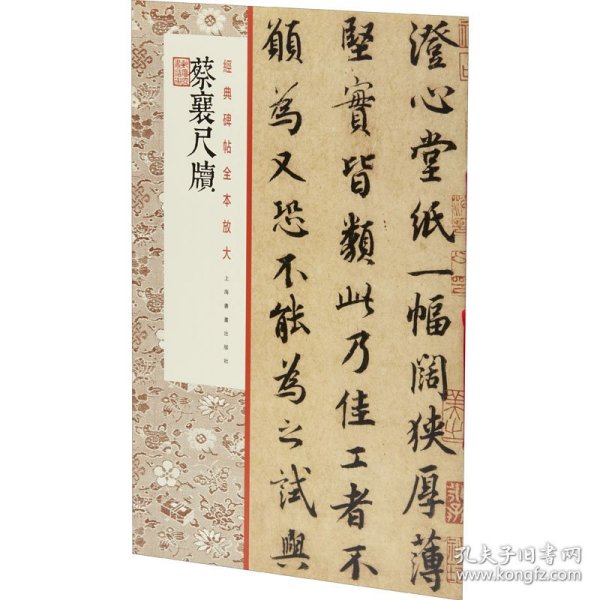 澄心堂紙一幅闊狹厚薄
堅實皆類此乃佳工者不
願為又恐不能為之試與
經典碑帖全本放大
上海書畫出版社
蔡襄尺牘
孔夫子旧书网
www.kongfz.com